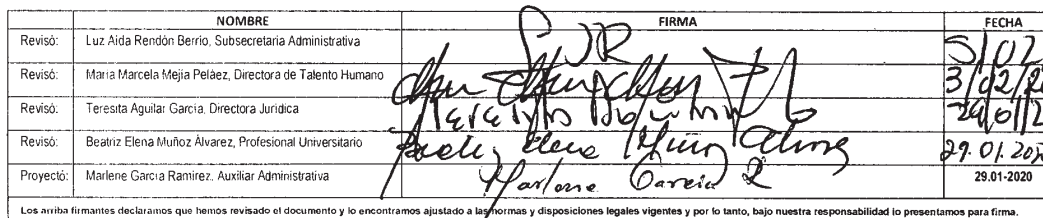 NOMBRE FIRMA FECHA
Revisó: Luz Aida Rendón Berrio, Subsecretaria Administrativa 5/02
Revisó: Maria Marcela Mejía Peláez, Directora de Talento Humano 3/02/20
Revisó: Teresita Aguilar García, Directora Jurídica Teresita Aguilar 29/01/2
Revisó: Beatriz Elena Muñoz Álvarez, Profesional Universitario Elena Muñoz 29.01.202
Proyectó: Marlene García Ramírez, Auxiliar Administrativa Marlene García R 29.01-2020
Los arriba firmantes declaramos que hemos revisado el documento y lo encontramos ajustado a las normas y disposiciones legales vigentes y por lo tanto, bajo nuestra responsabilidad lo presentamos para firma.